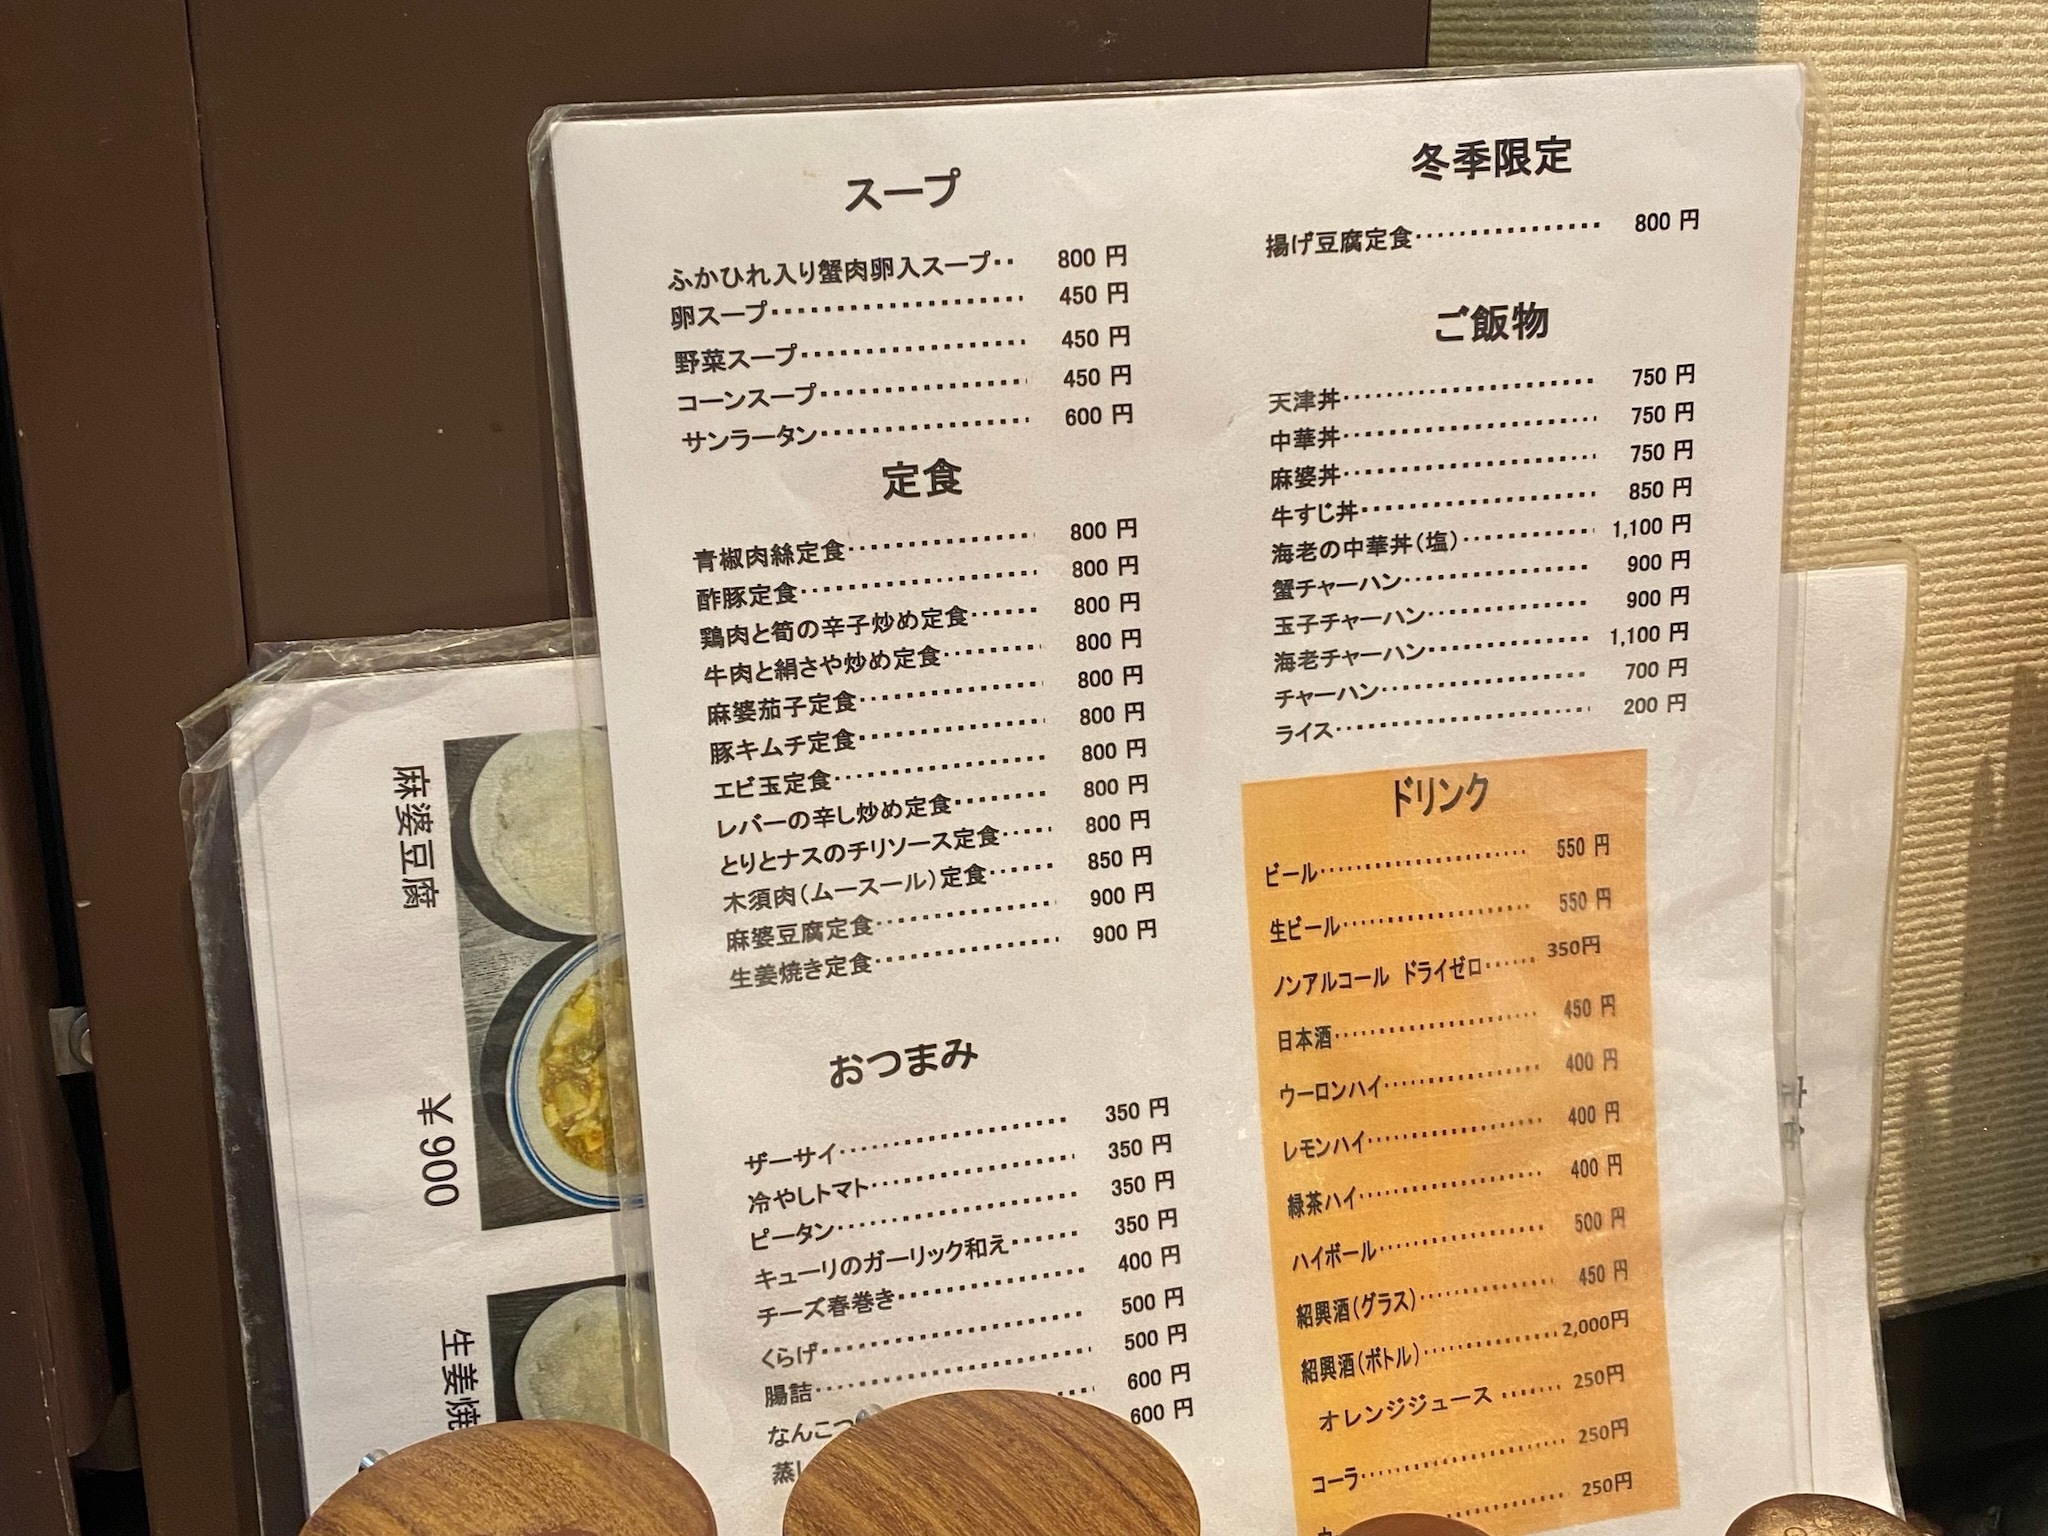 スープ
ふかひれ入り蟹肉卵入スープ‥ 800 円
卵スープ 450 円
野菜スープ 450 円
コーンスープ 450 円
サンラータン 600 円
定食
青椒肉絲定食 800 円
酢豚定食 800 円
鶏肉と筍の辛子炒め定食 800 円
牛肉と絹さや炒め定食 800 円
麻婆茄子定食 800 円
豚キムチ定食 800 円
エビ玉定食 800 円
レバーの辛し炒め定食 800 円
とりとナスのチリソース定食 800 円
木須肉(ムースール)定食 850 円
麻婆豆腐定食 900 円
生姜焼き定食 900 円
おつまみ
ザーサイ 350 円
冷やしトマト 350 円
ピータン 350 円
キューリのガーリック和え 350 円
チーズ春巻き 400 円
くらげ 500 円
腸詰 500 円
なんこつ 600 円
蒸し 600 円
冬季限定
揚げ豆腐定食 800 円
ご飯物
天津丼 750 円
中華丼 750 円
麻婆丼 750 円
牛すじ丼 850 円
海老の中華丼(塩) 1,100 円
蟹チャーハン 900 円
玉子チャーハン 900 円
海老チャーハン 1,100 円
チャーハン 700 円
ライス 200 円
ドリンク
ビール 550 円
生ビール 550 円
ノンアルコール ドライゼロ 350円
日本酒 450 円
ウーロンハイ 400 円
レモンハイ 400 円
緑茶ハイ 400 円
ハイボール 500 円
紹興酒(グラス) 450 円
紹興酒(ボトル) 2,000円
オレンジジュース 250円
コーラ 250円
250円
麻婆豆腐 ￥900
生姜焼